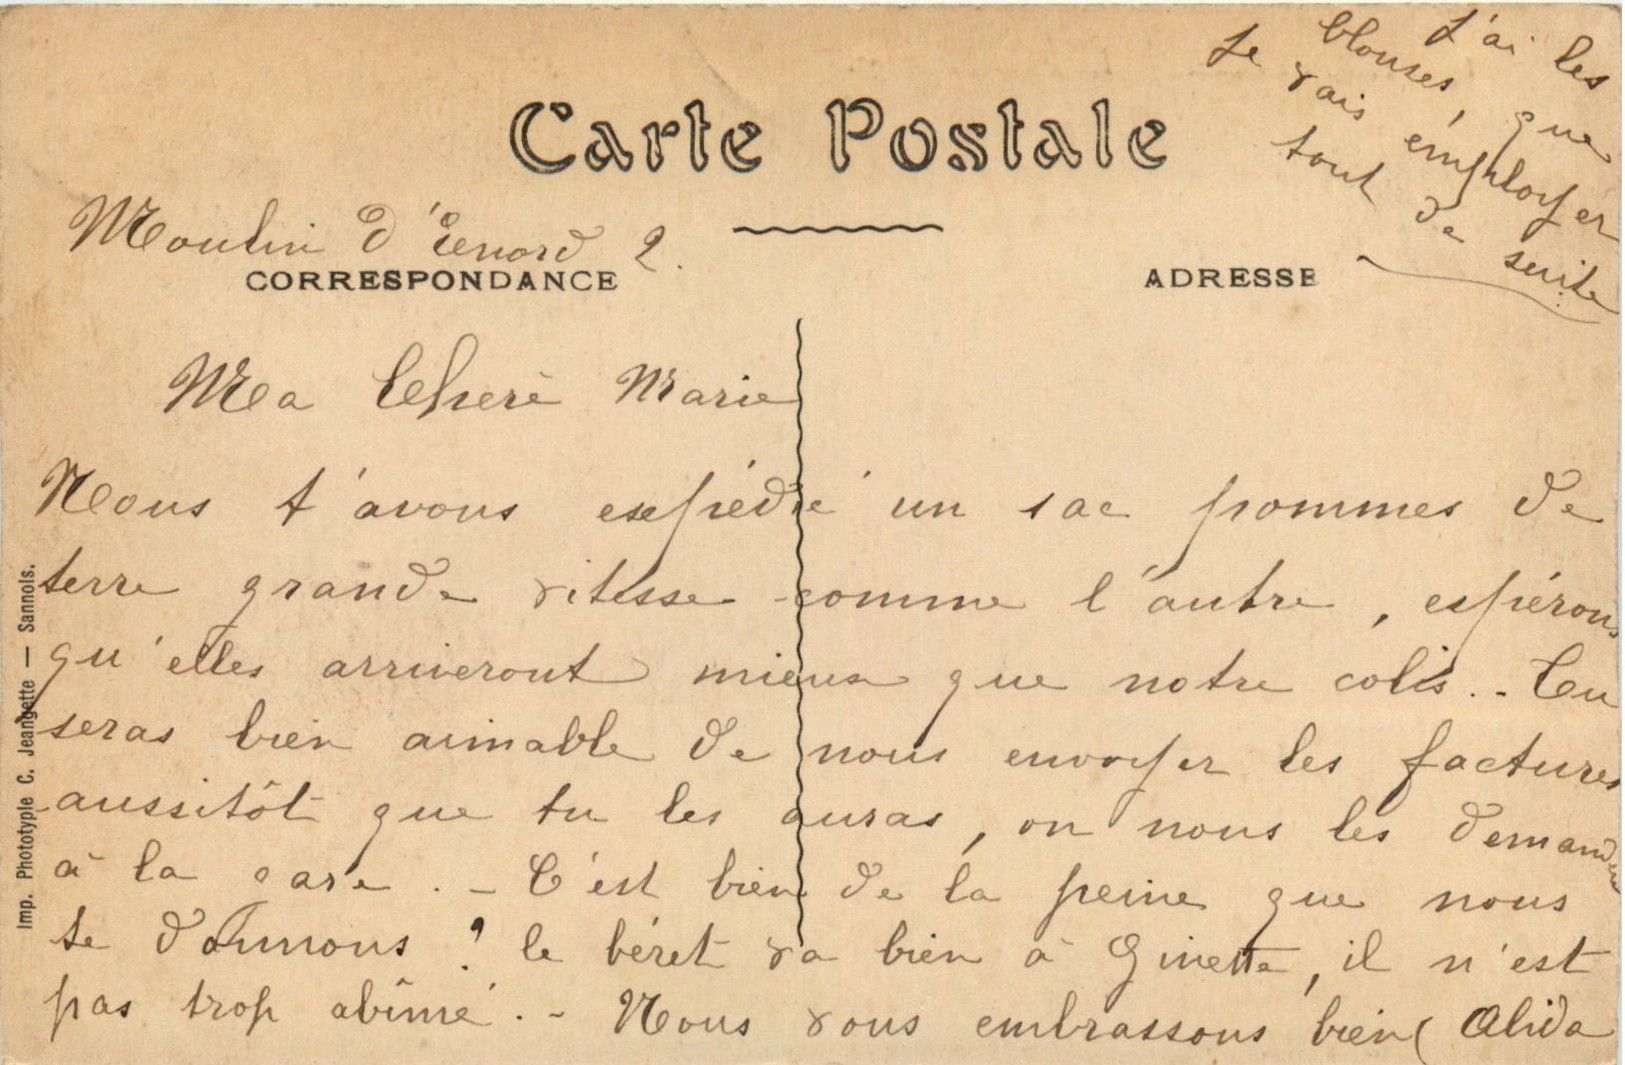 J'ai les
blouses, que
Je vais employer
tout de suite
Carte Postale
Moulin d'
CORRESPONDANCE
ADRESSE
Ma Cherè Marie
Nous t'avons expédié un sac pommes de
terre grande vitesse comme l'autre, espérons
qu'elles arriveront mieux que notre colis. - Tu
seras bien aimable de nous envoyer les factures
aussitôt que tu les auras, on nous les demande
à la gare. - C'est bien de la peine que nous
te donnons ! le béret va bien à Ginette, il n'est
pas trop abîmé. - Nous vous embrassons bien Alida
Imp. Phototypie C. Jeangette — Sannois.